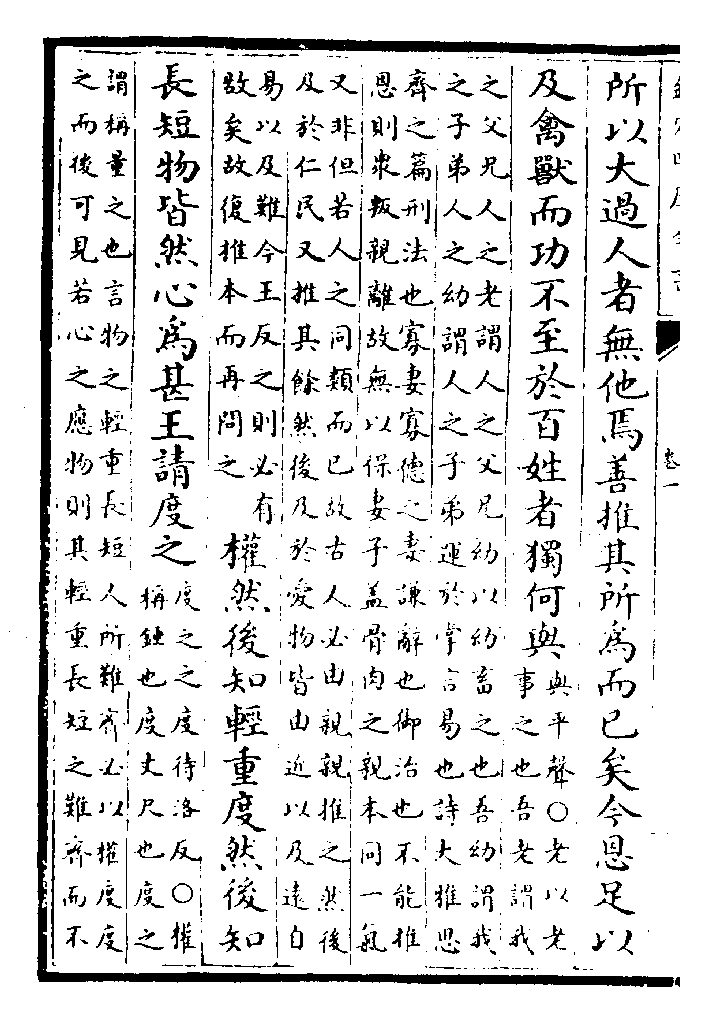 卷一
所以大過人者無他焉善推其所爲而已矣今恩足以
及禽獸而功不至於百姓者獨何與
與平聲○老以老
事之也吾老謂我
之父兄人之老謂人之父兄幼以幼畜之也吾幼謂我
之子弟人之幼謂人之子弟運於掌言易也詩大雅思
齊之篇刑法也寡妻寡德之妻謙辭也御治也不能推
恩則衆叛親離故無以保妻子盖骨肉之親本同一氣
又非但若人之同類而已故古人必由親親推之然後
及於仁民又推其餘然後及於愛物皆由近以及遠自
易以及難今王反之則必有
故矣故復推本而再問之
權然後知輕重度然後知
長短物皆然心爲甚王請度之
度之之度待洛反○權
稱錘也度丈尺也度之
謂稱量之也言物之輕重長短人所難齊必以權度度
之而後可見若心之應物則其輕重長短之難齊而不